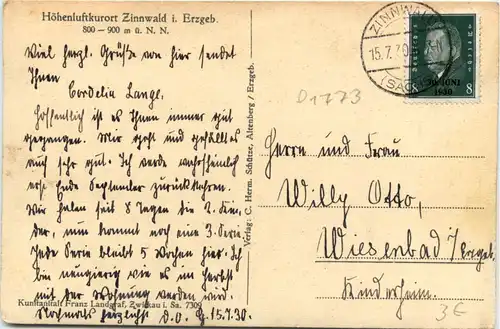 Höhenluftkurort Zinnwald i. Erzgeb.
800 – 900 m ü. N. N.
Viel herzl. Grüße von hier sendet
Ihnen
Cordelia Langl.
Hoffentlich ist es Ihnen immer gut
gegangen. Mir geht und gefällt es
auch sehr gut. Ich werde wahrscheinlich
erst Ende September zurückkehren.
Wir haben seit 8 Tagen die 2. Kin-
der, nun kommt noch eine 3. Serie.
Jede Serie bleibt 5 Wochen hier. Ich
bin neugierig wie es im Herbst
mit der Wohnung werden wird.
Nochmals herzlichst d. O. 15.7.30.
Kunstanstalt Franz Landgraf, Zwickau i. Sa. 7309
Verlag: C. Herm. Schütze, Altenberg / Erzgeb.
ZINNWALD
15.7.30
(SACHS
Deutsches Reich
30. JUNI
1930
8 8
D1773
Herrn und Frau
Willy Otto,
Wiesenbad / Erzgeb.
Kinderheim.
3€